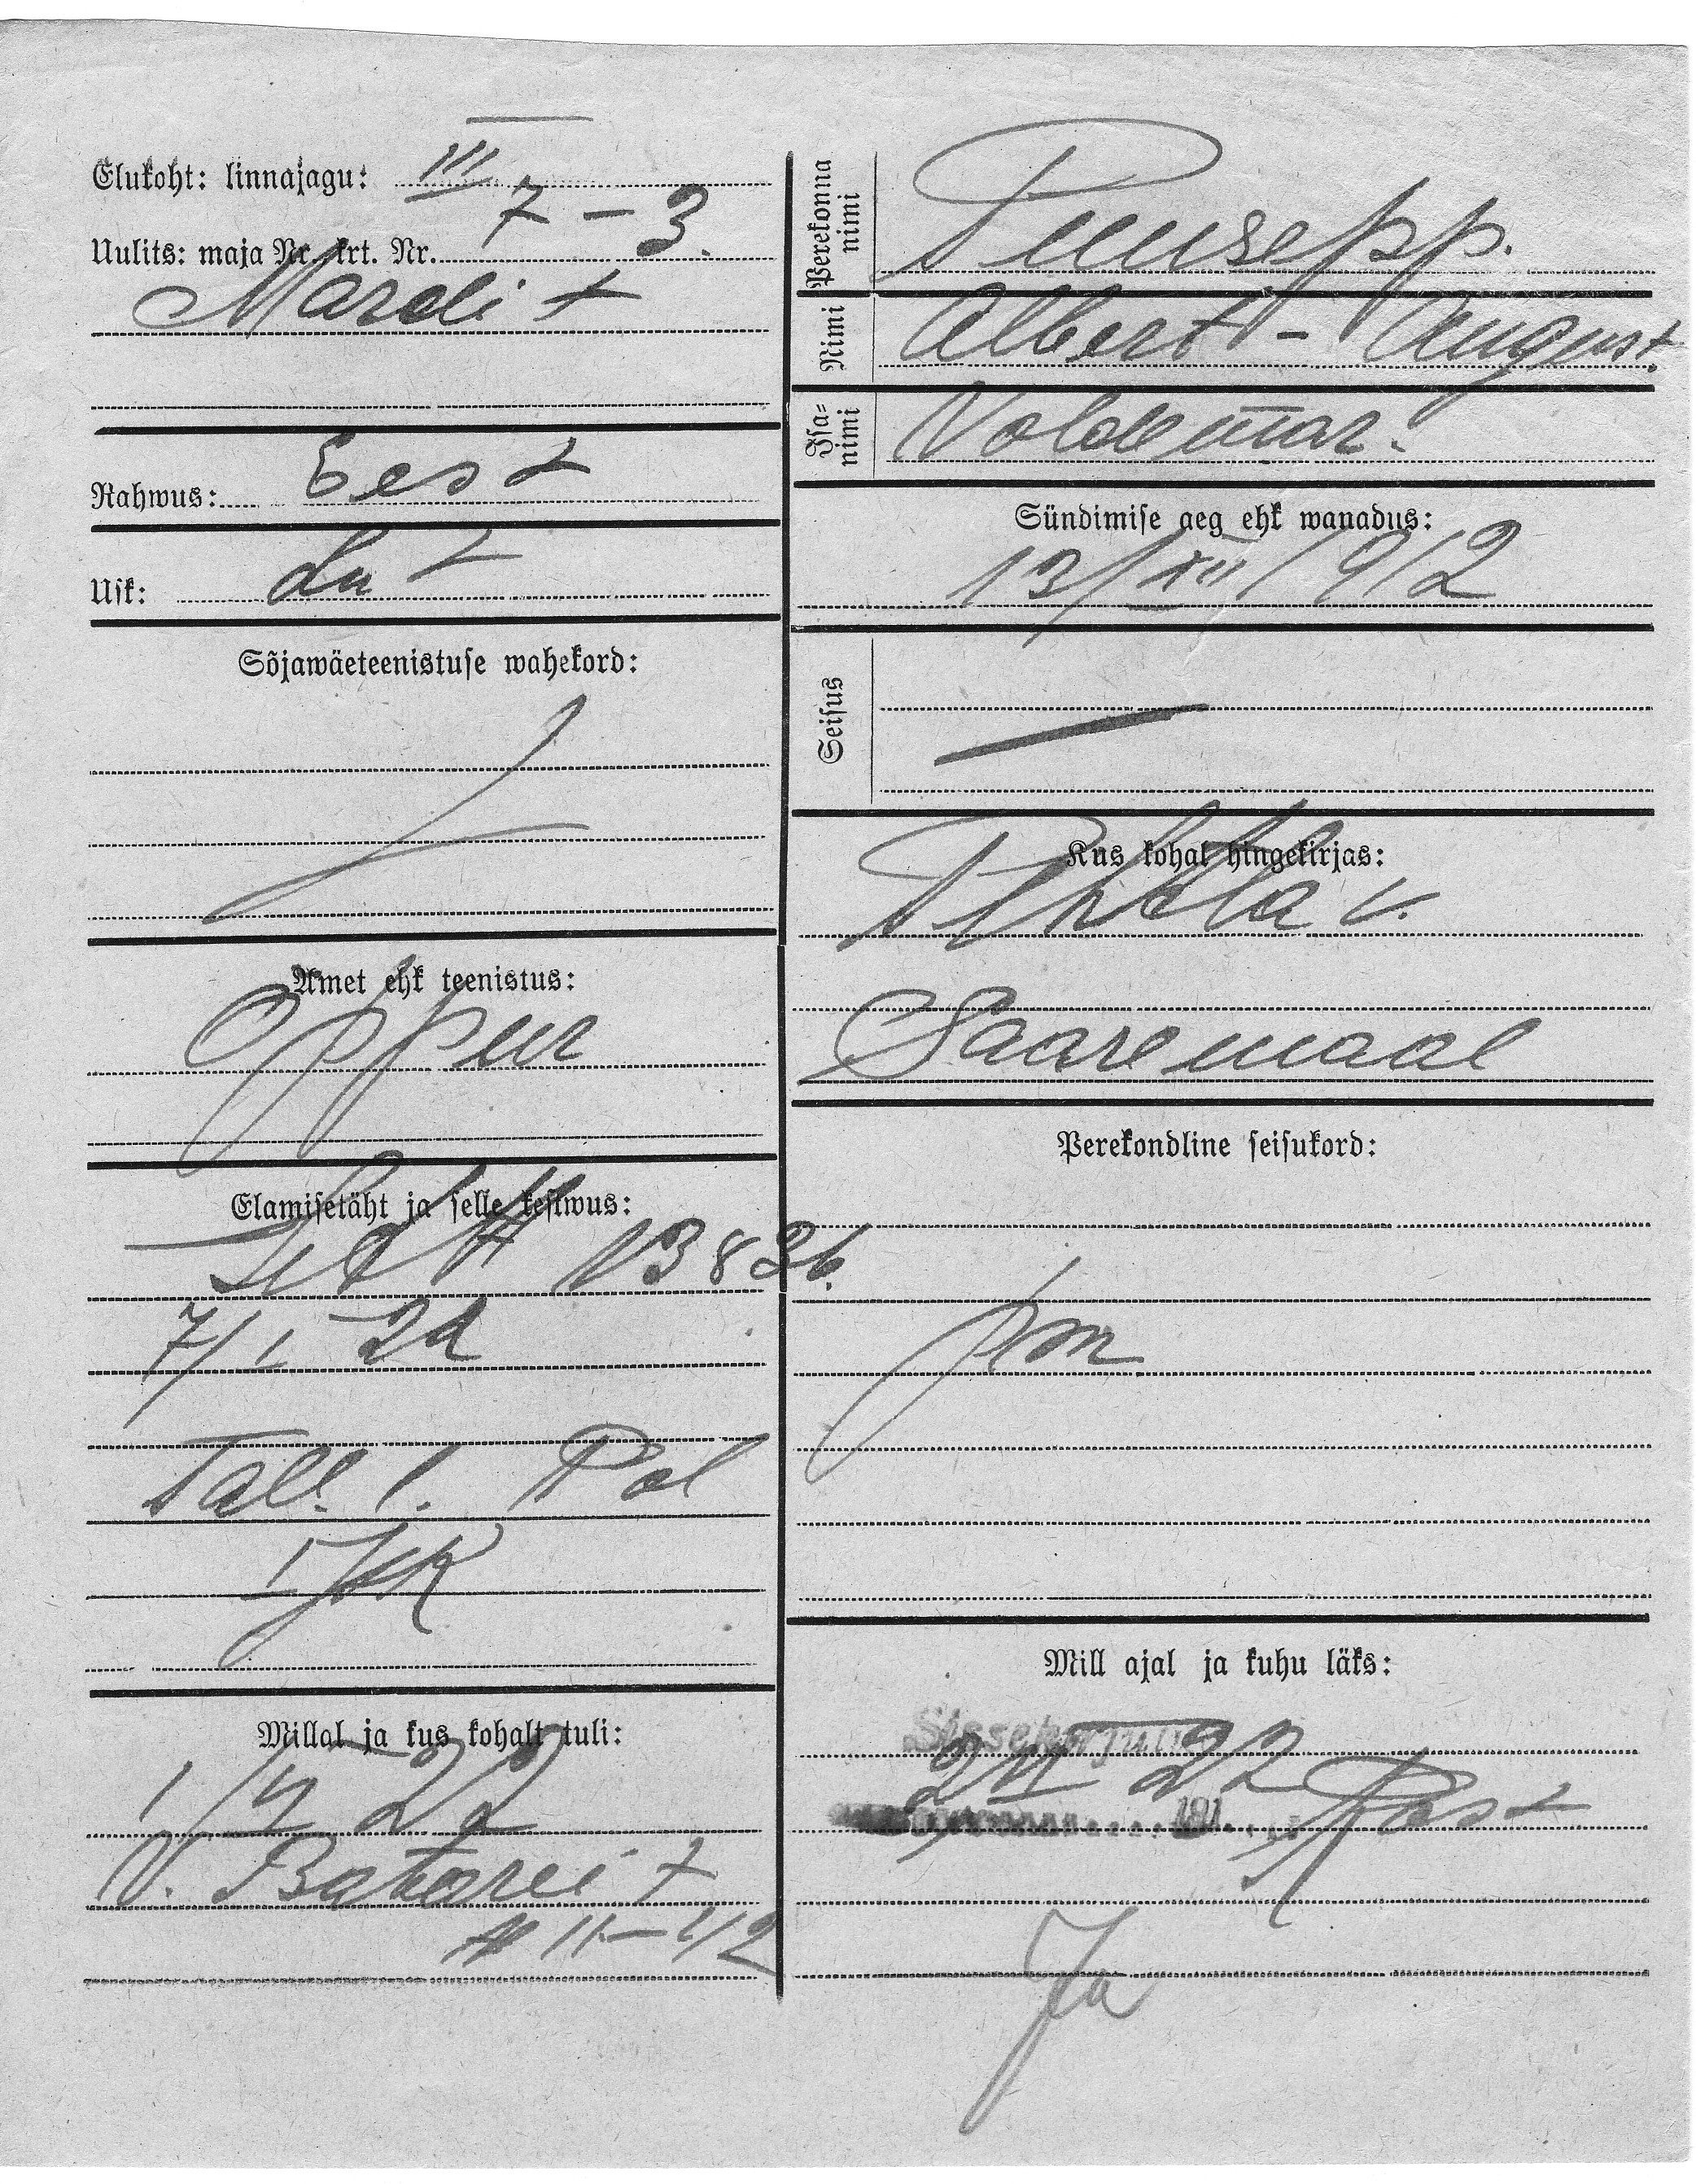 Elukoht: linnajagu: III
Uulits: maja Nr. krt. Nr. 7 – 3.
Mardi t
Rahwus: Eest
Usk: Lut
Sõjawäeteenistuse wahekord:
Amet ehk teenistus:
Oppur
Elamisetäht ja selle kestwus:
N 3826.
7/I 22
Tall. l. Pol
I jsk
Millal ja kus kohalt tuli:
1/V 22
V. Batarei t
# 11–1/2
Perekonna nimi
Puusepp.
Nimi
Albert - August.
Isa-nimi
Voldemar.
Sündimise aeg ehk wanadus:
13/XII 1912
Seisus
Kus kohal hingekirjas:
Pihtla v.
Saaremaal
Perekondline seisukord:
Mill ajal ja kuhu läks:
Sissekirjutud
22
191